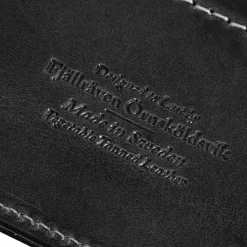 Designed in Lovely
Fjällräven Örnsköldsvik
Made in Sweden
Vegetable Tanned Leather